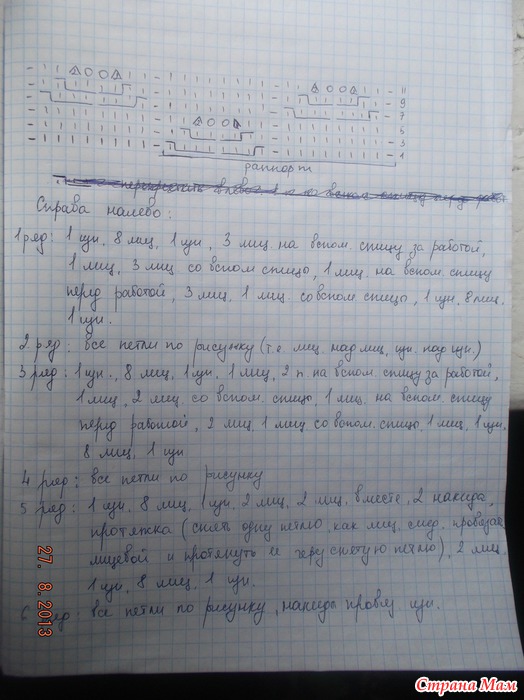 11
9
7
5
3
1
раппорт
Справа налево:
1 ряд: 1 изн, 8 лиц, 1 изн, 3 лиц. на вспом. спицу за работой,
1 лиц, 3 лиц со вспом спицы, 1 лиц. на вспом. спицу
перед работой, 3 лиц, 1 лиц. со вспом спицы, 1 изн, 8 лиц.
1 изн.
2 ряд: все петли по рисунку (т.е. лиц. над лиц, изн. над изн.)
3 ряд: 1 изн., 8 лиц, 1 изн, 1 лиц, 2 п. на вспом. спицу за работой,
1 лиц, 2 лиц. со вспом. спицы, 1 лиц. на вспом. спицу
перед работой, 2 лиц, 1 лиц со вспом. спицы, 1 лиц, 1 изн.
8 лиц, 1 изн
4 ряд: все петли по рисунку
5 ряд: 1 изн, 8 лиц, 1 изн, 2 лиц, 2 лиц. вместе, 2 накида,
протяжка (снять одну петлю, как лиц, след. провязать
лицевой и протянуть ее через снятую петлю), 2 лиц,
1 изн, 8 лиц, 1 изн.
6 ряд: все петли по рисунку, накиды провяз. изн.
27. 8.2013
Страна Мам